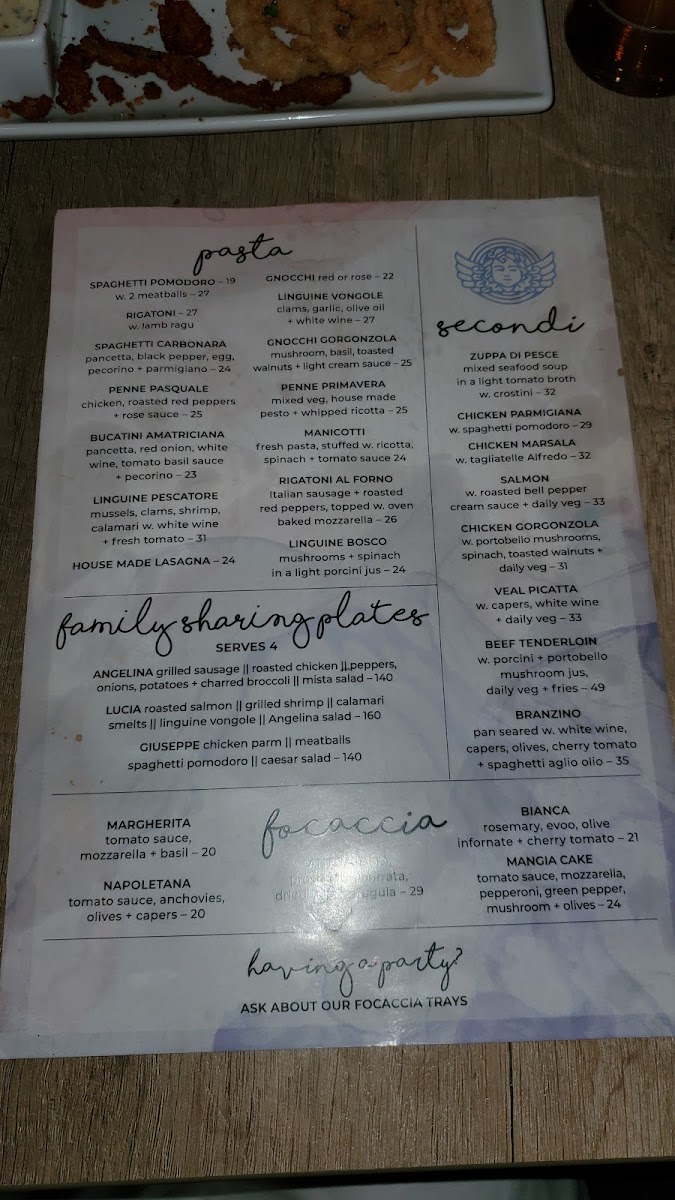 pasta
SPAGHETTI POMODORO – 19
w. 2 meatballs – 27
RIGATONI – 27
w. lamb ragu
SPAGHETTI CARBONARA
pancetta, black pepper, egg,
pecorino + parmigiano – 24
PENNE PASQUALE
chicken, roasted red peppers
+ rose sauce – 25
BUCATINI AMATRICIANA
pancetta, red onion, white
wine, tomato basil sauce
+ pecorino – 23
LINGUINE PESCATORE
mussels, clams, shrimp,
calamari w. white wine
+ fresh tomato – 31
HOUSE MADE LASAGNA – 24
GNOCCHI red or rose – 22
LINGUINE VONGOLE
clams, garlic, olive oil
+ white wine – 27
GNOCCHI GORGONZOLA
mushroom, basil, toasted
walnuts + light cream sauce – 25
PENNE PRIMAVERA
mixed veg, house made
pesto + whipped ricotta – 25
MANICOTTI
fresh pasta, stuffed w. ricotta,
spinach + tomato sauce 24
RIGATONI AL FORNO
Italian sausage + roasted
red peppers, topped w. oven
baked mozzarella – 26
LINGUINE BOSCO
mushrooms + spinach
in a light porcini jus – 24
secondi
ZUPPA DI PESCE
mixed seafood soup
in a light tomato broth
w. crostini – 32
CHICKEN PARMIGIANA
w. spaghetti pomodoro – 29
CHICKEN MARSALA
w. tagliatelle Alfredo – 32
SALMON
w. roasted bell pepper
cream sauce + daily veg – 33
CHICKEN GORGONZOLA
w. portobello mushrooms,
spinach, toasted walnuts +
daily veg – 31
VEAL PICATTA
w. capers, white wine
+ daily veg – 33
BEEF TENDERLOIN
w. porcini + portobello
mushroom jus,
daily veg + fries – 49
BRANZINO
pan seared w. white wine,
capers, olives, cherry tomato
+ spaghetti aglio olio – 35
family sharing plates
SERVES 4
ANGELINA grilled sausage || roasted chicken || peppers,
onions, potatoes + charred broccoli || mista salad – 140
LUCIA roasted salmon || grilled shrimp || calamari
smelts || linguine vongole || Angelina salad – 160
GIUSEPPE chicken parm || meatballs
spaghetti pomodoro || caesar salad – 140
focaccia
MARGHERITA
tomato sauce,
mozzarella + basil – 20
NAPOLETANA
tomato sauce, anchovies,
olives + capers – 20
– 29
BIANCA
rosemary, evoo, olive
infornate + cherry tomato – 21
MANGIA CAKE
tomato sauce, mozzarella,
pepperoni, green pepper,
mushroom + olives – 24
having a party?
ASK ABOUT OUR FOCACCIA TRAYS